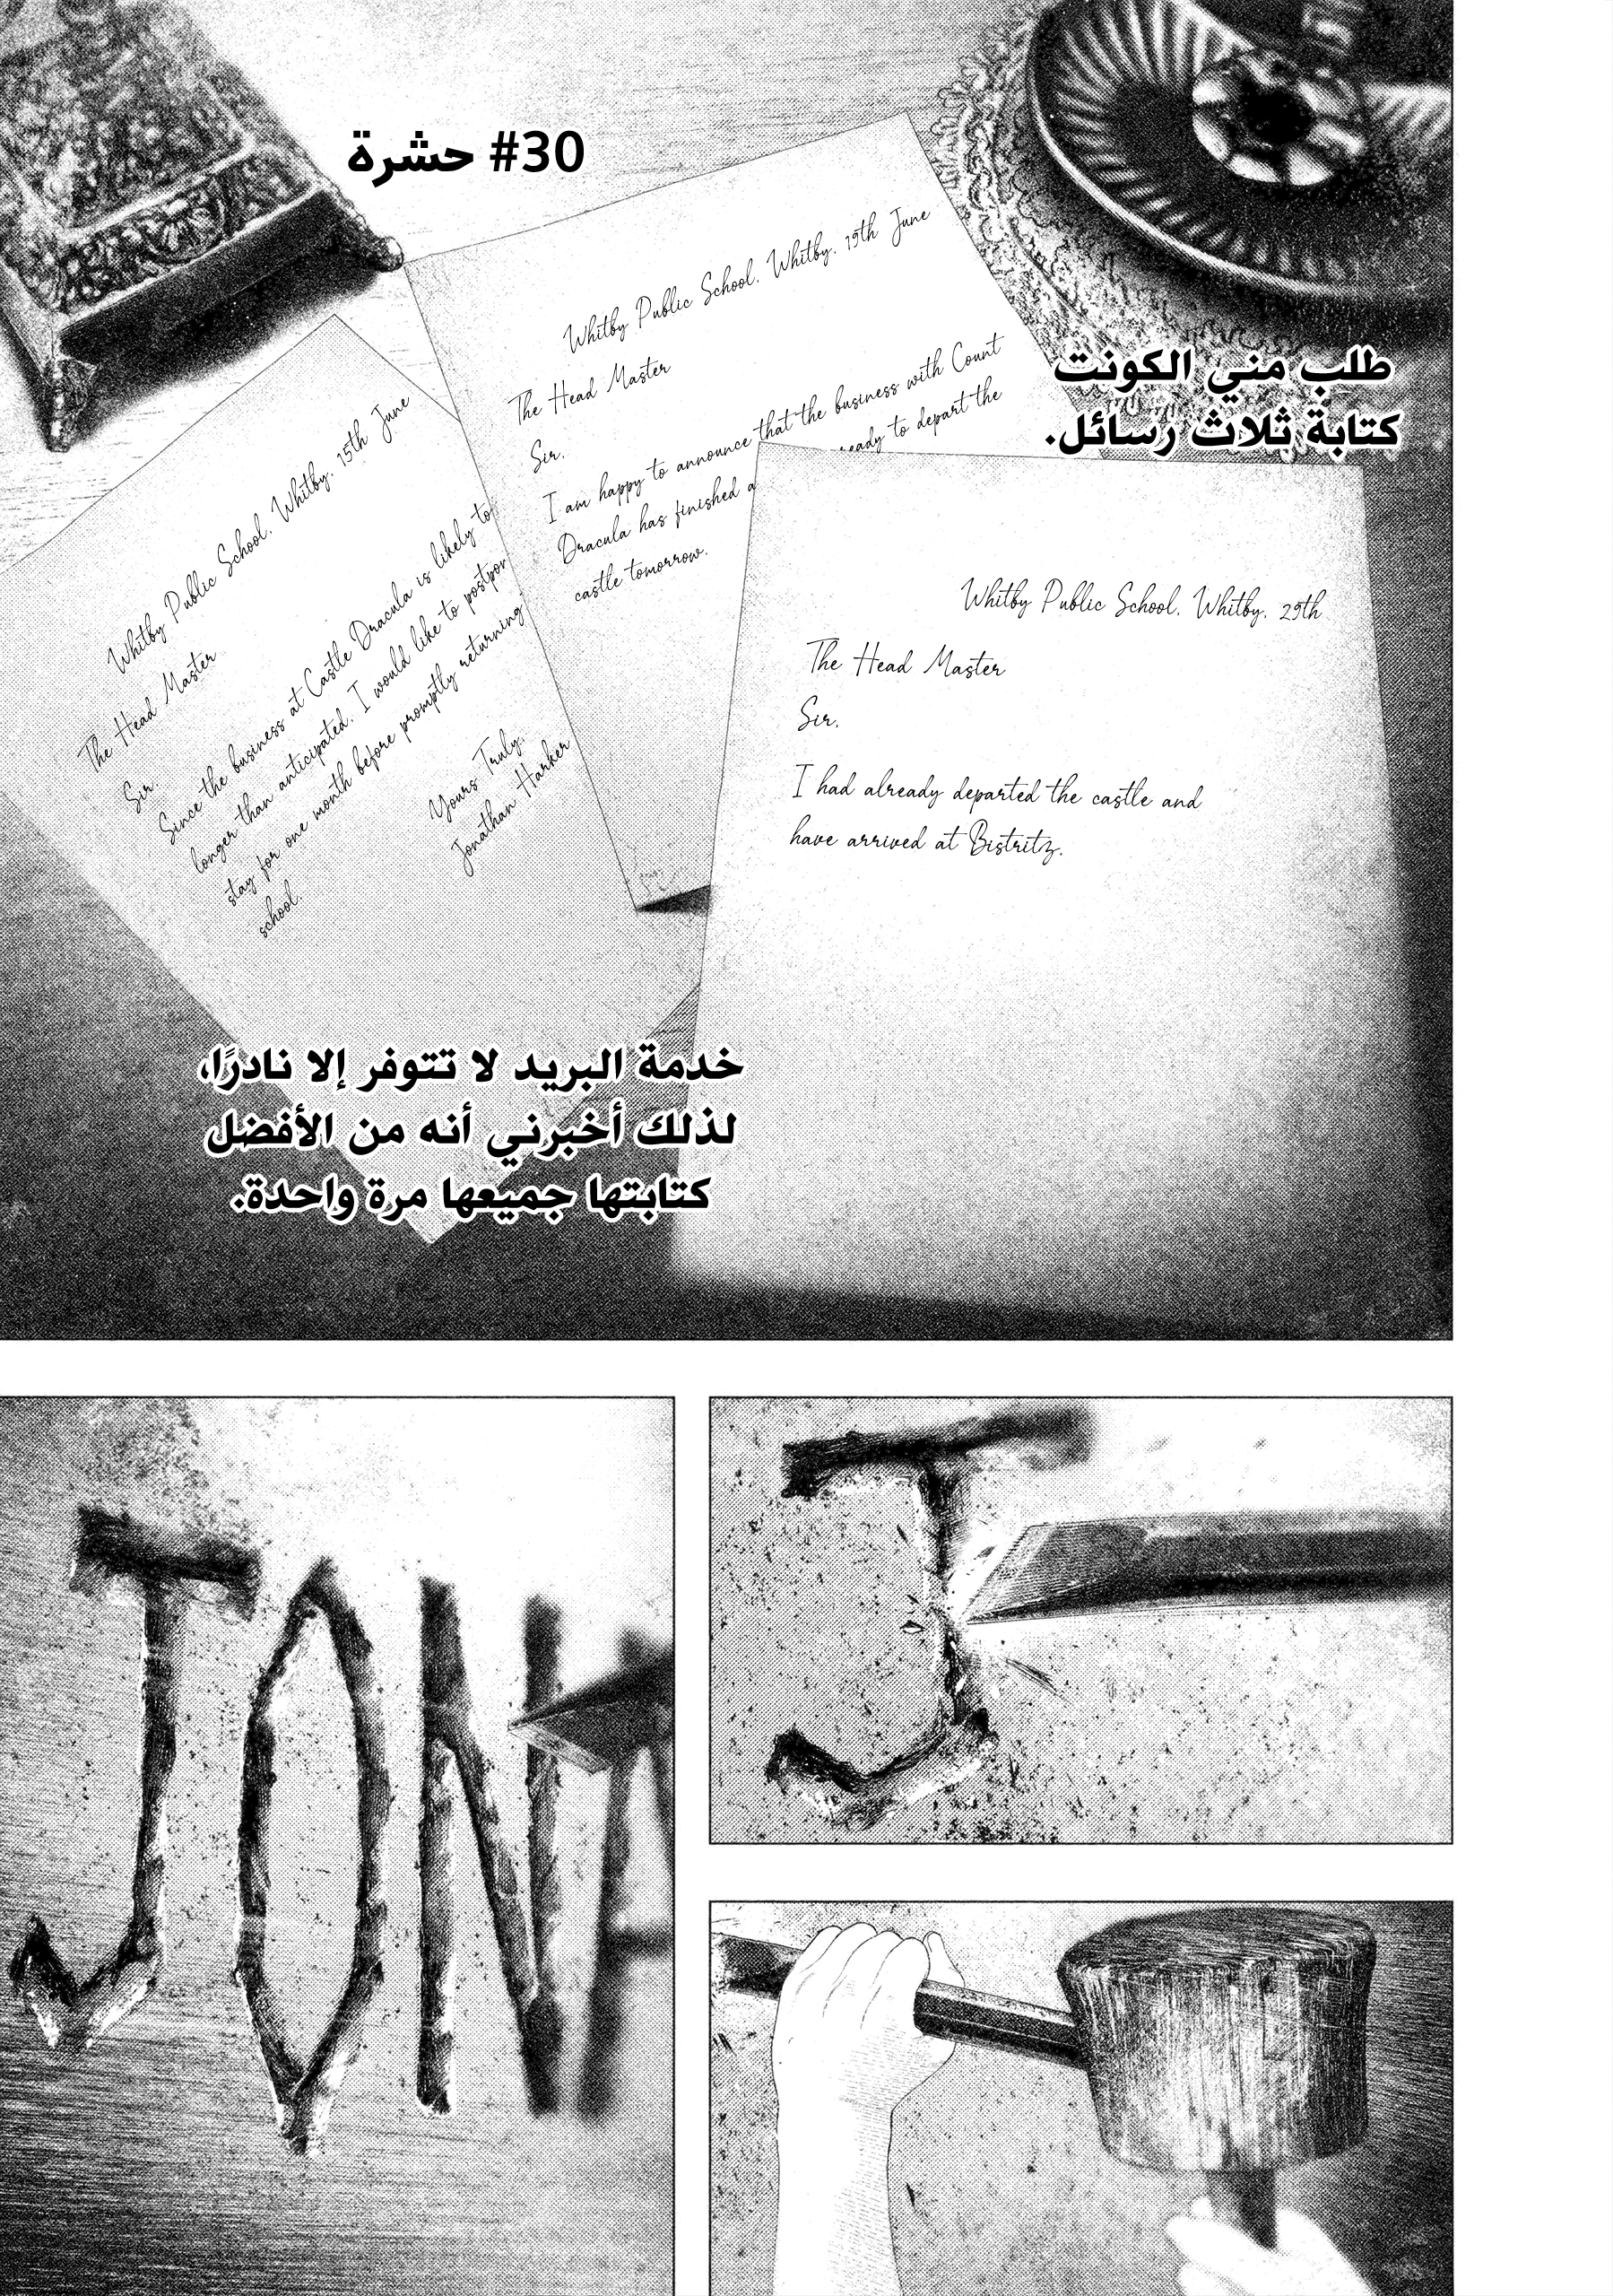 #30 حشرة
طلب مني الكونت
كتابة ثلاث رسائل.
Whitby Public School. Whitby. 19th June
The Head Master
Sir.
I am happy to announce that the business with Count
Dracula has finished a ready to depart the
castle tomorrow.
Whitby Public School. Whitby. 15th June
The Head Master
Sir.
Since the business at Castle Dracula is likely to
longer than anticipated. I would like to postpon
stay for one month before promptly returning
school.
Yours Truly.
Jonathan Harker
Whitby Public School. Whitby. 29th
The Head Master
Sir.
I had already departed the castle and
have arrived at Bistritz.
خدمة البريد لا تتوفر إلا نادرًا،
لذلك أخبرني أنه من الأفضل
كتابتها جميعها مرة واحدة.
J
JON